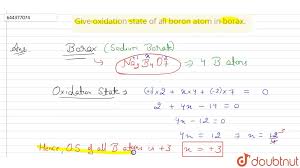 644377074
Give oxidation state of all boron atom in borax.
Ans Borax (Sodium Borate)
Na₂B₄O₇ ⇒ 4 B atoms
Oxidation State ⇒ (+1)×2 + x×4 + (-2)×7 = 0
2 + 4x - 14 = 0
4x - 12 = 0
4x = 12 ⇒ x = 12/4
x = +3
Hence, O.S. of all B atoms is +3
doubtnut